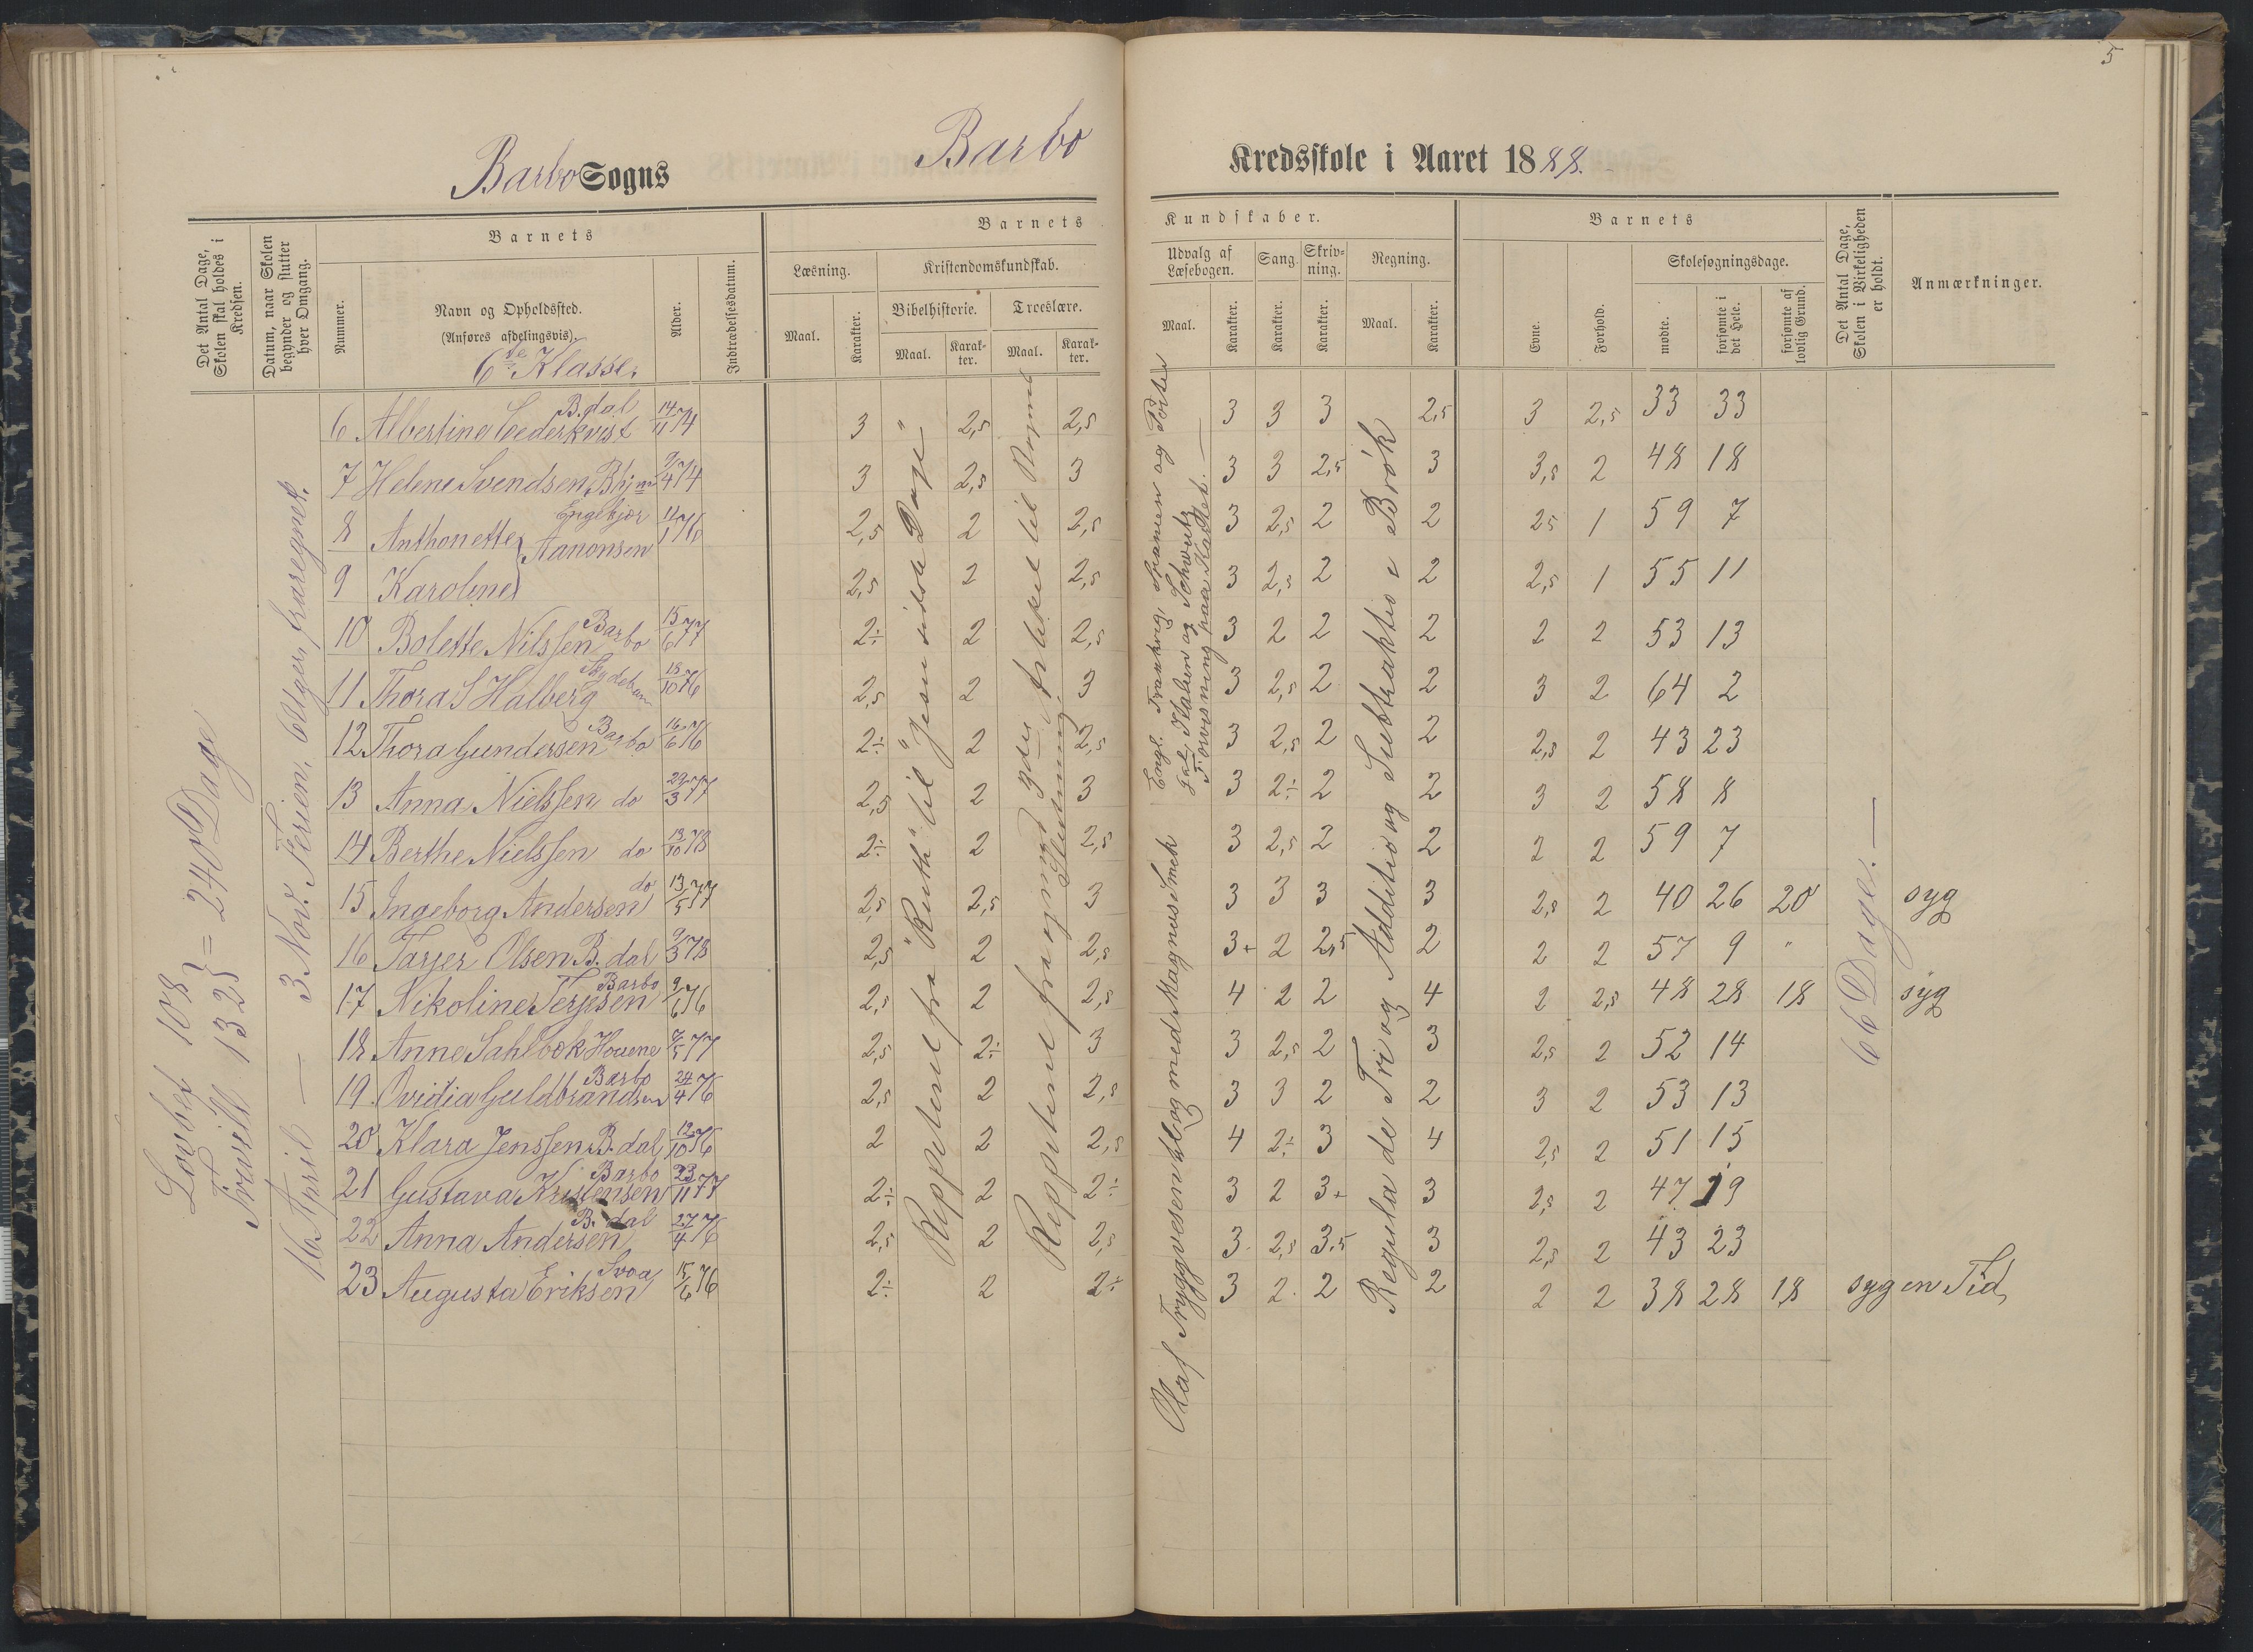 5
Barbo Sogns
Barbo Kredsskole i Aaret 1888.
Det Antal Dage, Skolen skal holdes i Kredsen.
Datum, naar Skolen begynder og slutter hver Omgang.
Barnets
Nummer.
Navn og Opholdssted.
(Anføres afdelingsvis).
6te Klasse.
Alder.
Indtrædelsesdatum.
Barnets Kundskaber.
Læsning.
Maal.
Karakter.
Kristendomskundskab.
Bibelhistorie.
Maal.
Karakter.
Troeslære.
Maal.
Karakter.
Udvalg af Læsebogen.
Maal.
Karakter.
Sang.
Karakter.
Skrivning.
Karakter.
Regning.
Maal.
Karakter.
Barnets
Evne.
Forhold.
Skolesøgningsdage.
mødte.
forsømte i det Hele.
forsømte af lovlig Grund.
Det Antal Dage, Skolen i Virkeligheden er holdt.
Anmærkninger.
Lovbef 108
Frivill 132 } = 240 Dage
16 April — 3 Nov. Ferien, 6 Uger, fraregnet.
Reppetent fra "Ruth" til "Jesu sidste Dage"
Reppetent fra og med 3die Artikel til Bogens Slutning.
Olaf Tryggvesen til og med Magnus Smek
Engl. Frankrig, Spanien og Portugal, Italien og Schweitz
Forevisning paa Kartet. —
Regula de Tri og Addition og Subtraktio i Brøk
66 Dage. —
6 Albertine Cederkvist B.dal 14/11 74 3 2,5 2,5 3 3 3 2,5 3 2,5 33 33
7 Helene Svendsen Bhjm 9/4 74 3 2,5 3 3 3 2,5 3 3,5 2 48 18
8 Anthonette } Aanonsen Engekjær 11/1 76 2,5 2 2,5 3 2,5 2 2 2,5 1 59 7
9 Karoline } 2,5 2 2,5 3 2,5 2 2 2,5 1 55 11
10 Bolette Nilssen Barbo 15/6 77 2÷ 2 2,5 3 2 2 2 2 2 53 13
11 Thora S Halberg 18/10 76 2,5 2 3 3 2,5 2 2 3 2 64 2
12 Thora Gundersen Barbo 16/6 76 2÷ 2 2,5 3 2,5 2 2 2,5 2 43 23
13 Anna Nielssen do 29/3 77 2,5 2 3 3 2÷ 2 2 3 2 58 8
14 Berthe Nielssen do 13/10 78 2÷ 2 2,5 3 2,5 2 2 2 2 59 7
15 Ingeborg Andersen do 13/5 77 2,5 2,5 3 3 3 3 3 2,5 2 40 26 20 syg
16 Tarjer Olsen B.dal 9/3 78 2,5 2 2,5 3+ 2 2,5 2 2 2 57 9 "
17 Nikoline Terjesen Barbo 9/6 76 2,5 2 2,5 4 2 2 4 2 2,5 48 28 18 syg
18 Anne Sahlbok Houene 7/5 77 2,5 2÷ 3 3 2,5 2 3 2,5 2 52 14
19 Ovidia Guldbrandsen Barbo 24/4 76 2,5 2 2,5 3 3 2 2 3 2 53 13
20 Klara Jenssen B.dal 12/10 76 2 2 2,5 4 2÷ 3 4 2,5 2 51 15
21 Gustava Kristensen Barbo 23/11 77 2÷ 2 2÷ 3 2 3+ 3 2,5 2 47 19
22 Anna Andersen B.dal 27/4 76 2,5 2 2,5 3 2,5 3.5 3 2,5 2 43 23
23 Augusta Eriksen Svoa 15/6 76 2÷ 2 2÷ 3 2 2 2 2 2 38 28 18 syg en Tid,